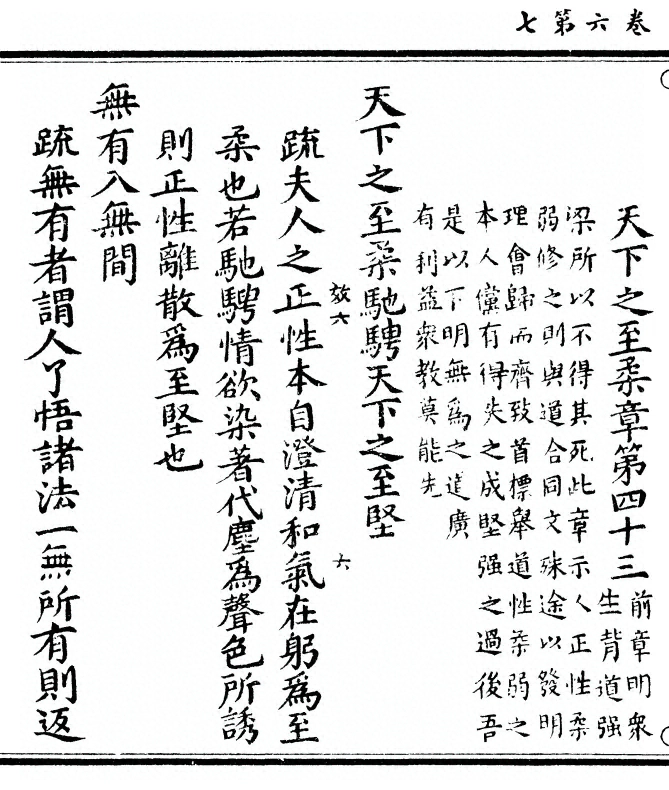 卷六第七
天下之至柔章第四十三
前章明衆
生背道强
梁所以不得其死此章示人正性柔
弱修之則與道合同文殊途以發明
理會歸而齊致首標舉道性柔弱之
本人儻有得失之成堅强之過後吾
是以下明無爲之道廣
有利益衆教莫能先
天下之至柔馳騁天下之至堅
放六
六
疏夫人之正性本自澄清和氣在躬爲至
柔也若馳騁情欲染著代塵爲聲色所誘
則正性離散爲至堅也
無有入無間
疏無有者謂人了悟諸法一無所有則返